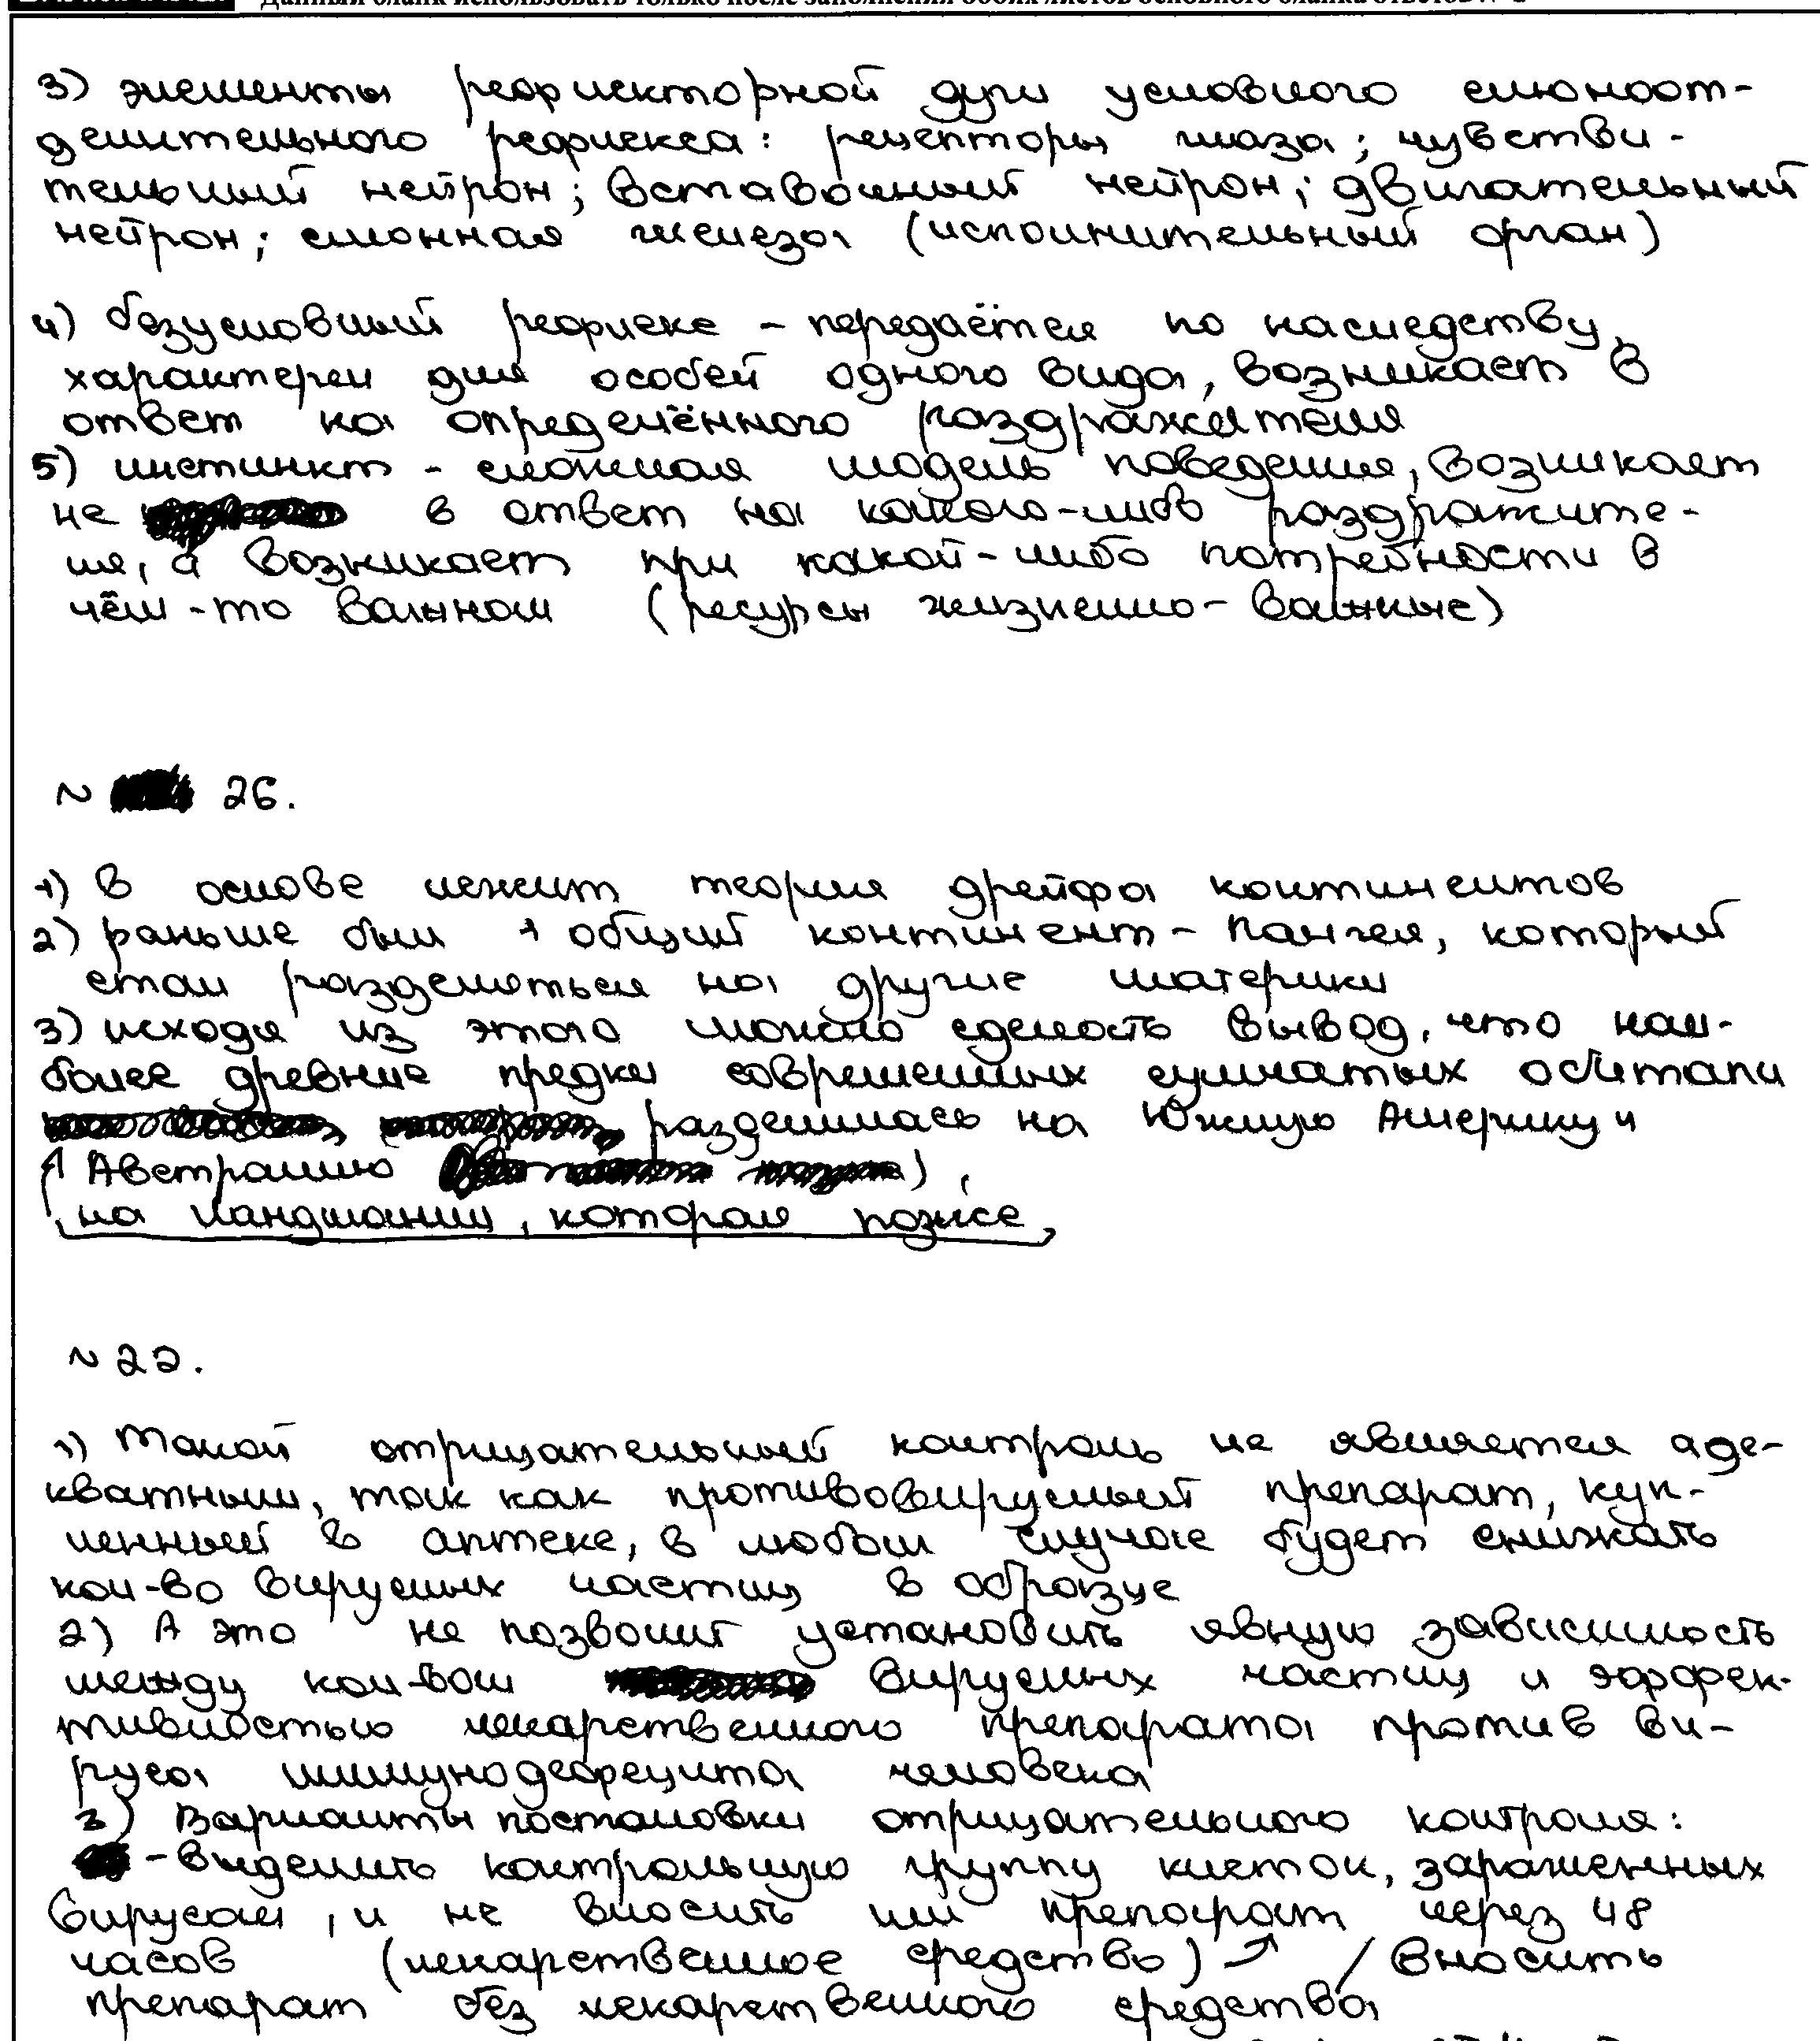 Данный бланк использовать только после заполнения обоих листов основного бланка ответов № 2
3) элементы рефлекторной дуги условного слюноот-
делительного рефлекса: рецепторы глаза; чувстви-
тельный нейрон; вставочный нейрон; двигательный
нейрон; слюнная железа (исполнительный орган)
4) безусловный рефлекс - передаётся по наследству,
характерен для особей одного вида, возникает в
ответ на определённого раздражителя
5) инстинкт - сложная модель поведения, возникает
не в ответ на какого-либо раздражите-
ля, а возникает при какой-либо потребности в
чём-то важном (ресурсы жизненно-важные)
~ 26.
1) в основе лежит теория дрейфа континентов
2) раньше был 1 общий континент - Пангея, который
стал разделяться на другие материки
3) исходя из этого можно сделать вывод, что наи-
более древние предки современных сумчатых обитали
разделилась на Южную Америку и
Австралию ),
на ландшании, которая позже
~ 22.
1) Такой отрицательный контроль не является аде-
кватным, так как противовирусный препарат, куп-
ленный в аптеке, в любом случае будет снижать
кол-во вирусных частиц в образце
2) А это не позволит установить явную зависимость
между кол-вом вирусных частиц и эффек-
тивностью лекарственного препарата против ви-
руса иммунодефецита человека
3) Варианты постановки отрицательного контроля:
- выделить контрольную группу клеток, зараженных
вирусом, и не вносить им препарат через 48
часов (лекарственное средство) / вносить
препарат без лекарственного средства